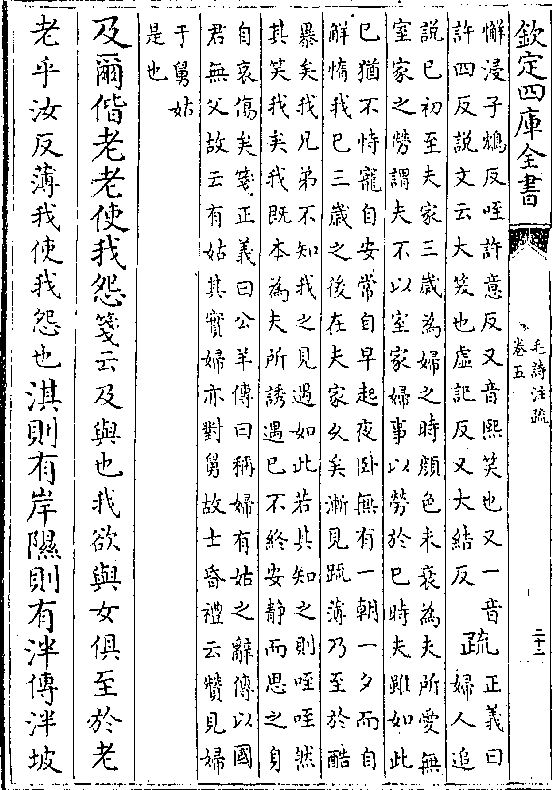 欽定四庫全書
毛詩注疏
卷五
二十二
懈浸子鴆反咥許意反又音熙笑也又一音
許四反説文云大笑也虚記反又大結反
疏
正義曰
婦人追
説已初至夫家三歳為婦之時顔色未衰為夫所愛無
室家之勞謂夫不以室家婦事以勞於已時夫雖如此
已猶不恃寵自安常自早起夜卧無有一朝一夕而自
解惰我已三歳之後在夫家乆矣漸見疏薄乃至於酷
暴矣我兄弟不知我之見遇如此若其知之則咥咥然
其笑我矣我既本為夫所誘遇已不終安静而思之身
自哀傷矣箋正義曰公羊傳曰稱婦有姑之辭傳以國
君無父故云有姑其實婦亦對舅故士昏禮云贊見婦
于舅姑
是也
及爾偕老老使我怨箋云及與也我欲與女俱至於老
老乎汝反薄我使我怨也淇則有岸隰則有泮傳泮坡